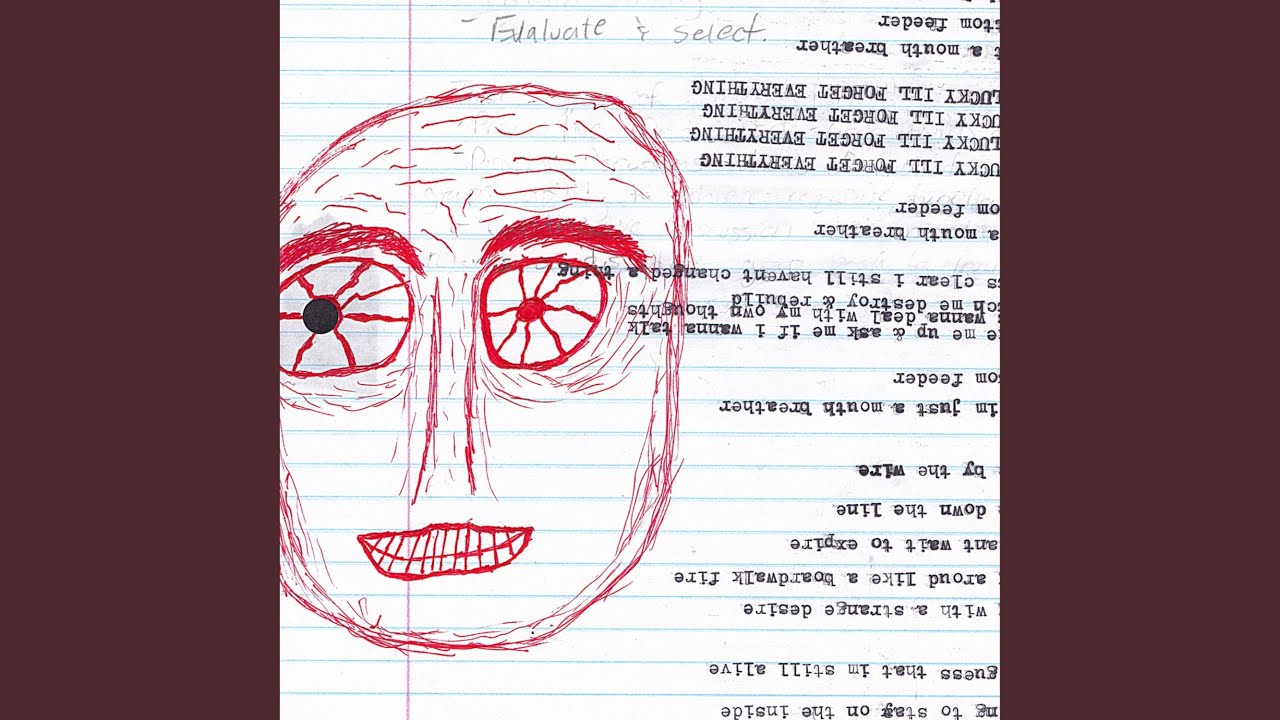 - Evaluate & select.
ng to stay on the inside
guess that im still alive
with a strange desire
aroud like a boardwalk fire
ant wait to expire
down the line
by the wire
im just a mouth breather
om feeder
e me up & ask me if i wanna talk
wanna deal with my own thoughts
tch me destroy & rebuild
s clear i still havent changed a thing
a mouth breather
om feeder
UCKY ILL FORGET EVERYTHING
LUCKY ILL FORGET EVERYTHING
UCKY ILL FORGET EVERYTHING
LUCKY ILL FORGET EVERYTHING
t a mouth breather
ttom feeder